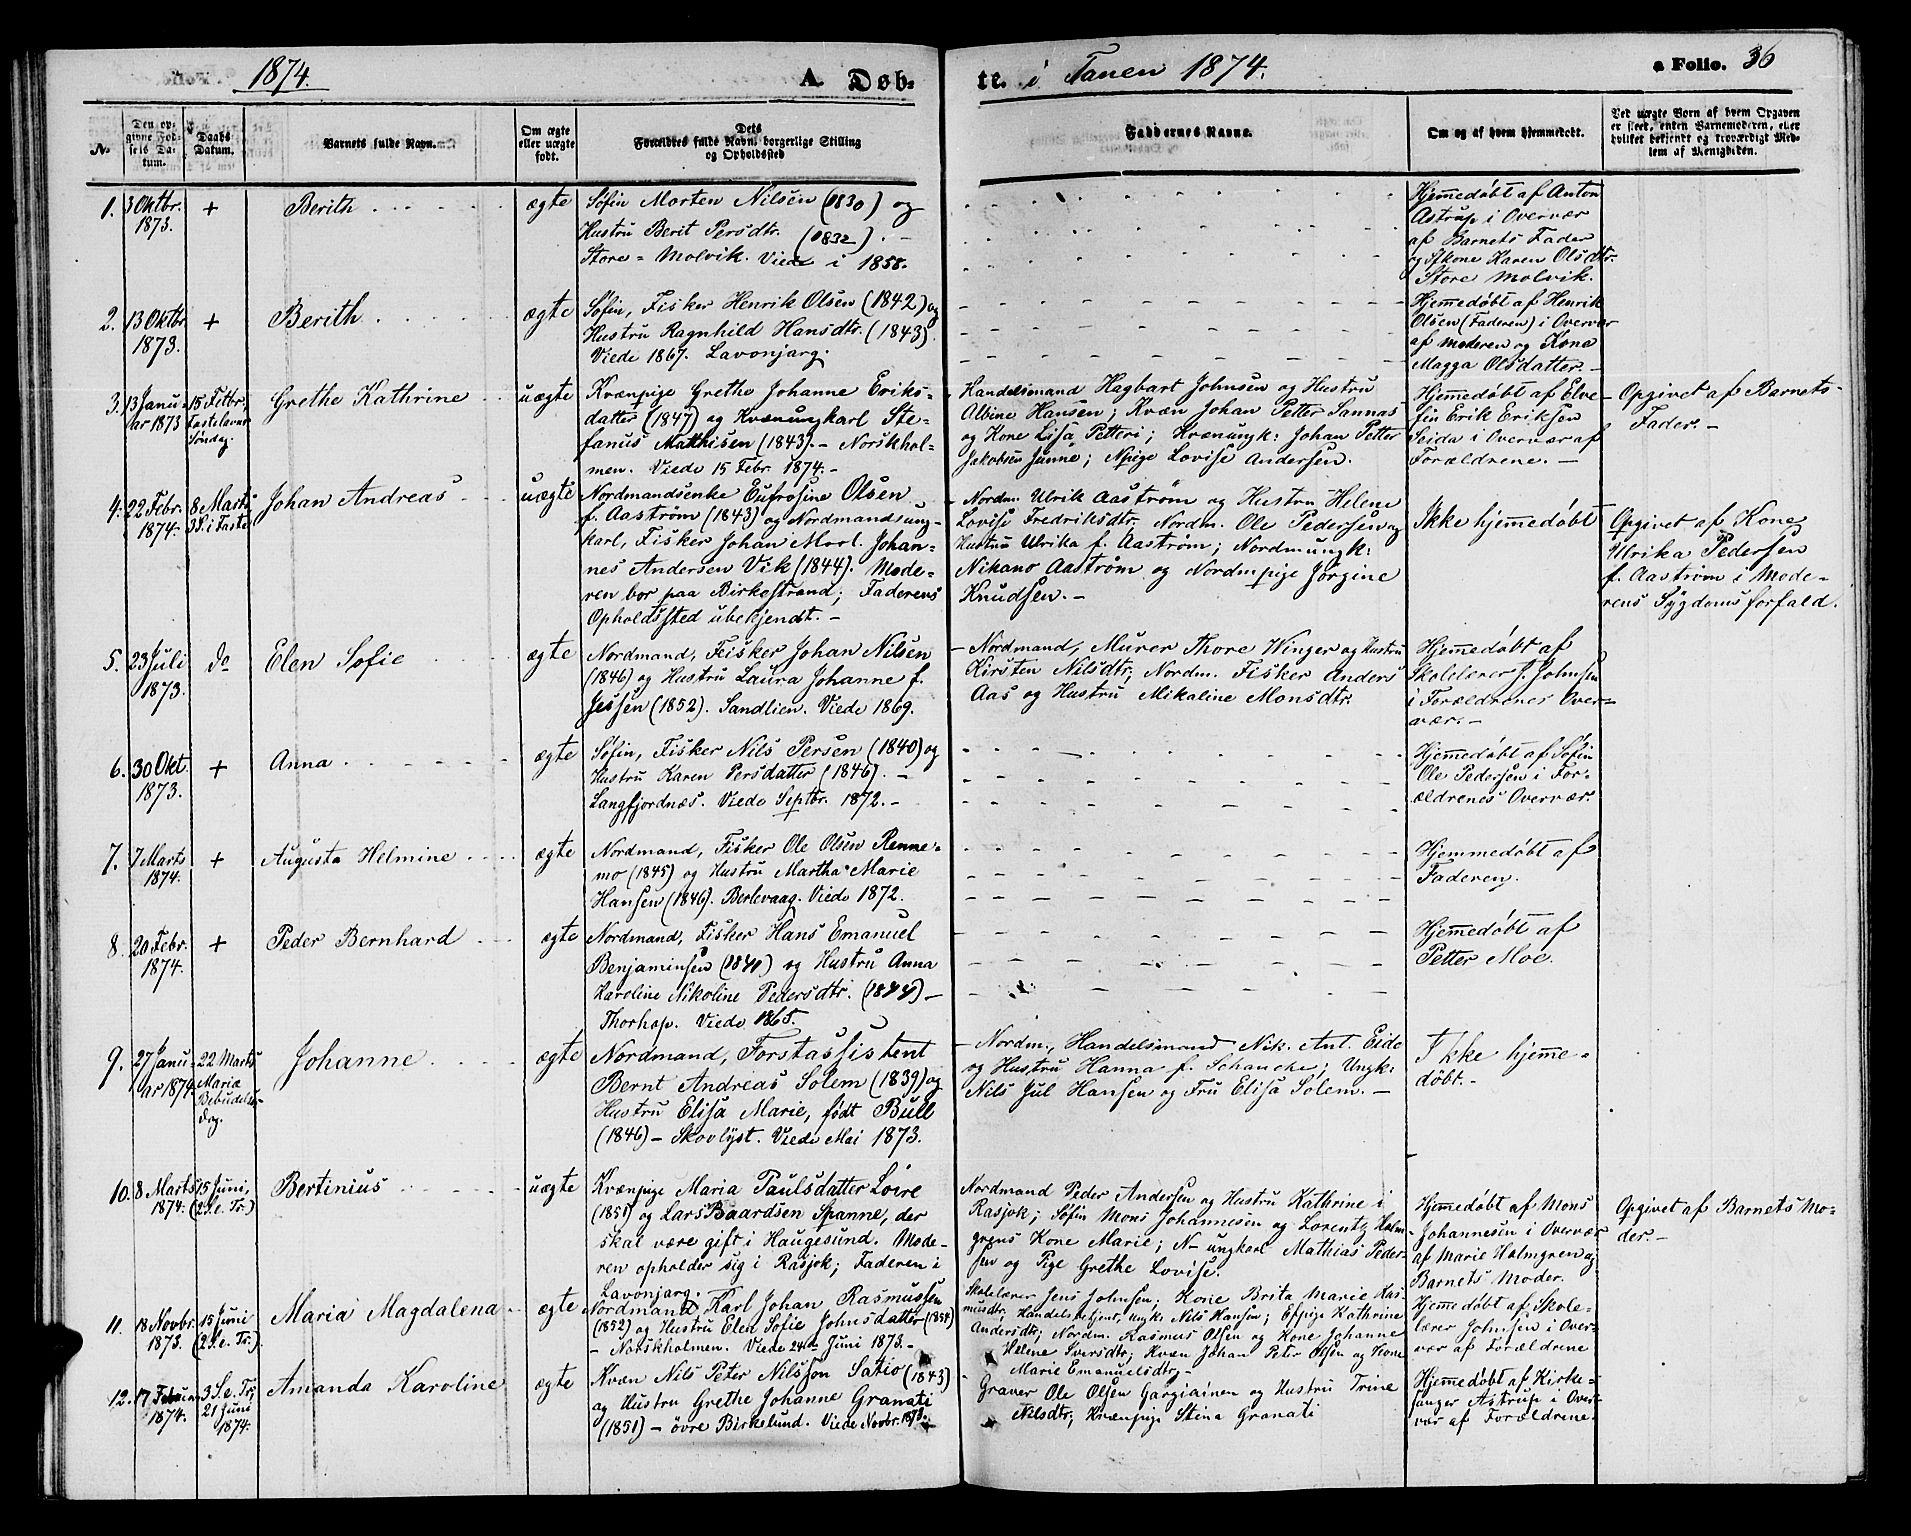 1874.
A. Døb-
te. i Tanen 1874.
a Folio. 36
No
Den opgivne Fødsels Datum.
Daabs Datum.
Barnets fulde Navn.
Om ægte eller uægte født.
Dets Forældres fulde Navn, borgerlige Stilling og Opholdssted
Faddernes Navne.
Om og af hvem hjemmedøbt.
Ved uægte Børn af hvem Opgaven er skeet, enten Barnemoderen, eller hvilket bekjendt og troværdigt Medlem af Menigheden.
1. 3 Oktbr. 1873. + Berith ægte
Søfin Morten Nilsen (1830) og
Hustru Berit Persdtr. (1832). -
Store-Molvik. Viede i 1858.
Hjemmedøbt af Anton
Astrup i Overvær
af Barnets Fader
og Kone Karen Olsdtr.
Store Molvik.
2. 13 Oktbr 1873. + Berith ægte
Søfin, Fisker Henrik Olsen (1842) og
Hustru Ragnhild Hansdtr. (1843).
Viede 1867. Lavonjarg.
Hjemmedøbt af Henrik
Olsen (Faderen) i Overvær
af Moderen og Kona
Magga Olsdatter. -
3. 13 Janu-ar 1873 15 Febr, Fastelavns Søndag. Grethe Kathrine uægte
Kvænpige Grethe Johanne Eriks-
datter (1847) og Kvænungkarl Ste-
fanus Mathisen (1843). - Norskhol-
men. Viede 15 Febr. 1874. -
Handelsmand Hagbart Johnsen og Hustru
Albine Hansen; Kvæn Johan Petter Sannas
og Kone Lisa Petteri; Kvænungk: Johan Petter
Jakobsen Junne; Npige Lovise Andersen.
Hjemmedøbt af Elve-
fin Erik Eriksen
Seida i Overvær af
Forældrene. -
Opgivet af Barnets
Fader. -
4. 22 Febr. 1874. 8 Marts 3 S. i Faste Johan Andreas uægte
Nordmandsenke Eufrosine Olsen
f. Aaström (1843) og Nordmandsung-
karl, Fisker Johan Mort. Johan-
nes Andersen Vik (1844). Mode-
ren bor paa Birkestrand; Faderens
Opholdssted ubekjendt. -
Nordm. Ulrik Aaström og Hustru Helene
Lovise Fredriksdtr. Nordm. Ole Pedersen og
Hustru Ulrika f. Aaström; Nordmungk:
Nikano Aaström og Nordmpige Jörgine
Knudsen. -
Ikke hjemmedøbt
Opgivet af Kone
Ulrika Pedersen
f. Aaström i Mode-
rens Sygdomsforfald.
5. 23 Juli 1873. do Elen Sofie ægte
Nordmand, Fisker Johan Nilsen
(1846) og Hustru Laura Johanne f.
Jessen (1852). Sandlien. Viede 1869.
Nordmand, Murer Thore Winger og Hustru
Kirsten Nilsdtr; Nordm. Fisker Anders
Aas og Hustru Mikaline Monsdtr.
Hjemmedøbt af
Skolelærer J. Johnsen
i Forældrenes Over-
vær. -
6. 30 Okt. 1873. + Anna ægte
Søfin, Fisker Nils Persen (1840) og
Hustru Karen Persdatter (1846). -
Langfjordnæs. Viede Septbr. 1872. -
Hjemmedøbt af Søfin
Ole Pedersen i For-
ældrenes Overvær.
7. 7 Marts 1874. + Augusta Helmine ægte
Nordmand, Fisker Ole Olsen Renne-
mo (1845) og Hustru Martha Marie
Hansen (1846). Berlevaag. Viede 1872.
Hjemmedøbt af
Faderen.
8. 20 Febr. 1874. + Peder Bernhard ægte
Nordmand, Fisker Hans Emanuel
Benjaminsen (1841) og Hustru Anna
Karoline Nikoline Pedersdtr. (1844) -
Thorhop. Viede 1865.
Hjemmedøbt af
Petter Moe.
9. 27 Janu-ar 1874. 22 Marts Maria Bebudelses Dag. Johanne ægte
Nordmand, Forstassistent
Bernt Andreas Solem (1839) og
Hustru Elisa Marie, født Bull
(1846) - Skovlyst. Viede Mai 1873.
Nordm., Handelsmand Nik. Ant. Eide
og Hustru Hanna f. Schancke; Ungk:
Nils Jul Hansen og Fru Elisa Solem. -
Ikke hjemme-
døbt. -
10. 8 Marts 1874. 15 Juni, (2 S. e. Tr.) Bertinius uægte
Kvænpige Maria Paulsdatter Loire
(1851) og Lars Baardsen Spanne, der
skal være gift i Haugesund. Mode-
ren opholder sig i Rasjok; Faderen i
Lavonjarg.
Nordmand Peder Andersen og Hustru Kathrine i
Rasjok; Søfin Mons Johannesen og Lorentz Holm-
grens Kone Marie; N-ungkarl Mathias Peder-
sen og Pige Grethe Lovise.
Hjemmedøbt af Mons
Johannesen i Overvær
af Marie Holmgren og
Barnets Moder.
Opgivet af Barnets Mo-
der. -
11. 18 Novbr. 1873. 15 Juni (2 S. e. Tr.) Maria Magdalena ægte
Nordmand Karl Johan Rasmussen
(1852) og Hustru Elen Sofie Johnsdatter (1854)
- Norskholmen. Viede 24de Juni 1873. -
Skolelærer Jens Johnsen. Kone Brita Marie Ras-
musdtr, Handelsbetjent, ungk: Nils Hansen; Efpige Kathrine
Andersdtr; Nordm. Rasmus Olsen og Kone Johanne
Helene Iversdtr; Kvæn Johan Peter Olsen og Kone
Marie Emanuelsdtr -
Hjemmedøbt af Skole-
lærer Johnsen i Over-
vær af Forældrene
12. 17 Februar 1874. 3 S. e. Tr. 21 Juni 1874. Amanda Karoline ægte
Kvæn Nils Peter Nilsson Satio (1843)
og Hustru Grethe Johanne Granati
(1851) - övre Birkelund. Viede Novbr. 1873.
Graver Ole Olsen Gargiainen og Hustru Trine
Nilsdtr; Kvænpige Stina Granati
Hjemmedøbt af Kirke-
sanger Astrup i Over-
vær af Forældrene.